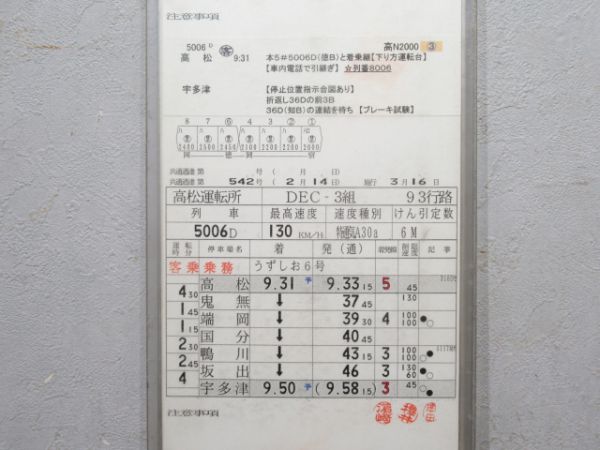 注意事項
5006D 客 高N2000 ③
高松 9:31 本5#5006D(徳B)と着乗継【下り方運転台】
【車内電話で引継ぎ】 ☆列番8006
宇多津 【停止位置指示合図あり】
折返し36Dの前3B
36D(知B)の連結を待ち 【ブレーキ試験】
8 7 ⑥ 4 3 ② ①
2400 2500 2450 2100 2200 2200 2000
共通通番 第 号 ( 月 日)
共通通番 第 542 号 ( 2月14日) 施行 3月16日
高松運転所 DEC-3組 93行路
列車 最高速度 速度種別 けん引定数
5006D 130KM/H A30a 6M
運転時分 停車場名 着 発(通) 着発線 制限速度 記事
客乗乗務 うずしお6号
高松 9.31 9.3315 5 45
430 鬼無 ↓ 3745 130
145 端岡 ↓ 3930 4 100 100
115 国分 ↓ 4045
230 鴨川 ↓ 4315 3 100 100
245 坂出 ↓ 46 3 130 60
4 宇多津 9.50 (9.5815) 3 45
注意事項